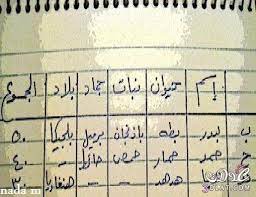 إسم حيوان نبات جماد بلاد المجموع
ب بدر بطه باذنجان برميل بلجيكا ٥٠
ح حمد حمار حمص حائط - ٤٠
هدهد - - هنغاريا
nada m